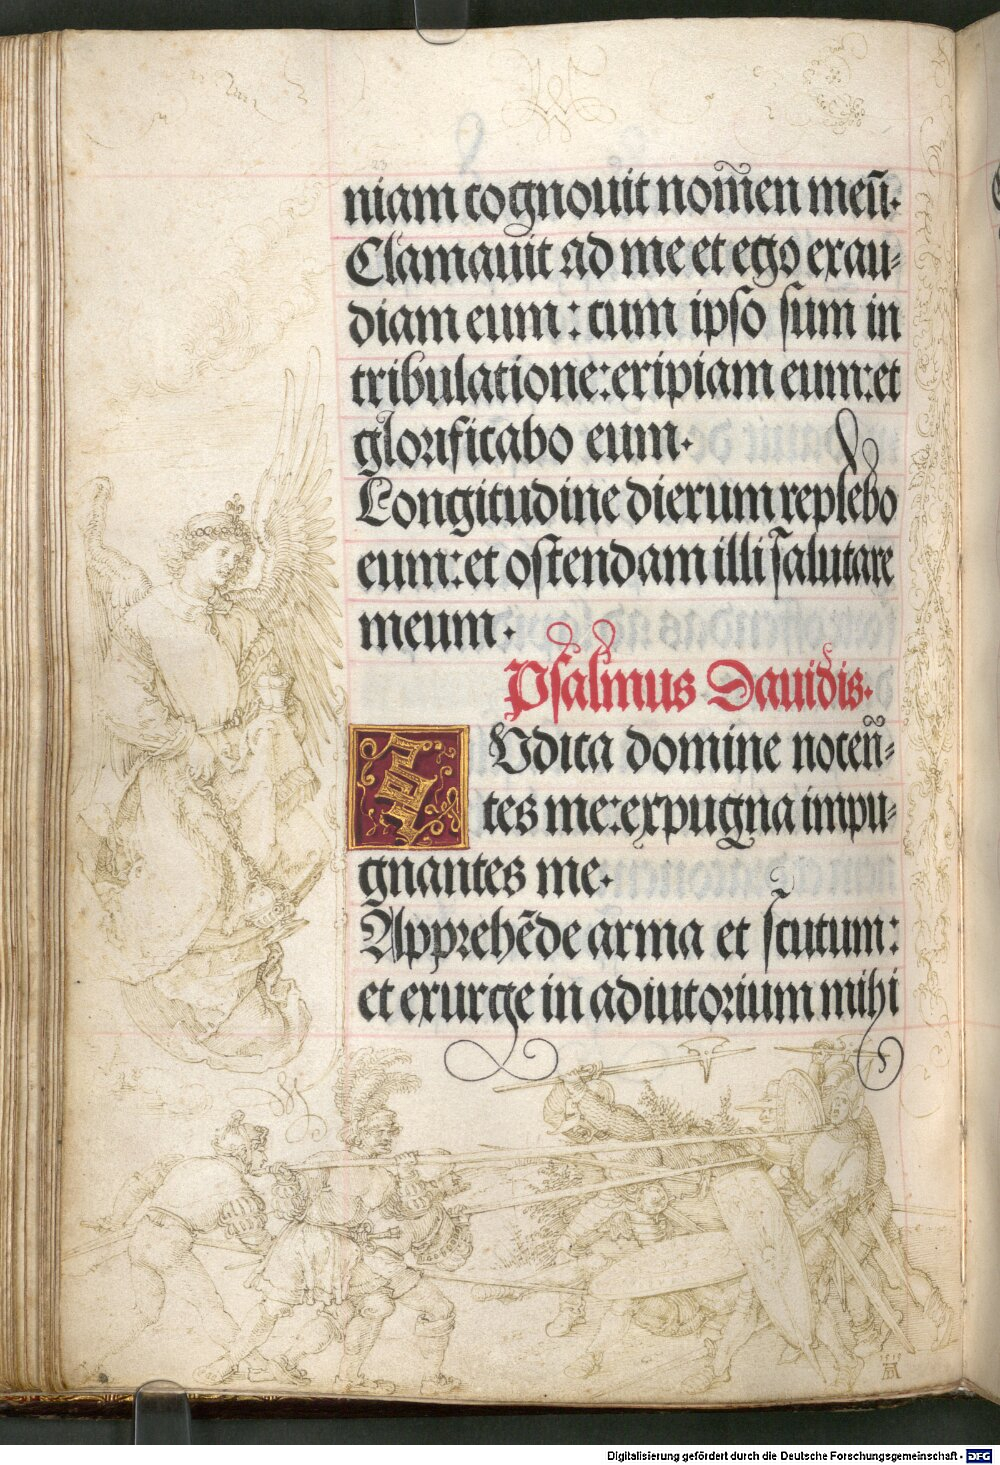 niam cognouit nom̃en meū.
Clamauit ad me et ego exau⸗
diam eum: cum ipso sum in
tribulatione: eripiam eum: et
glorificabo eum.
Longitudine dierum replebo
eum: et ostendam illi salutare
meum.
Psalmus Dauidis.
IUdica domine nocen̄⸗
tes me: expugna impu⸗
gnantes me.
Apprehēde arma et scutum:
et exurge in adiutorium mihi
1515
AD
Digitalisierung gefördert durch die Deutsche Forschungsgemeinschaft - DFG